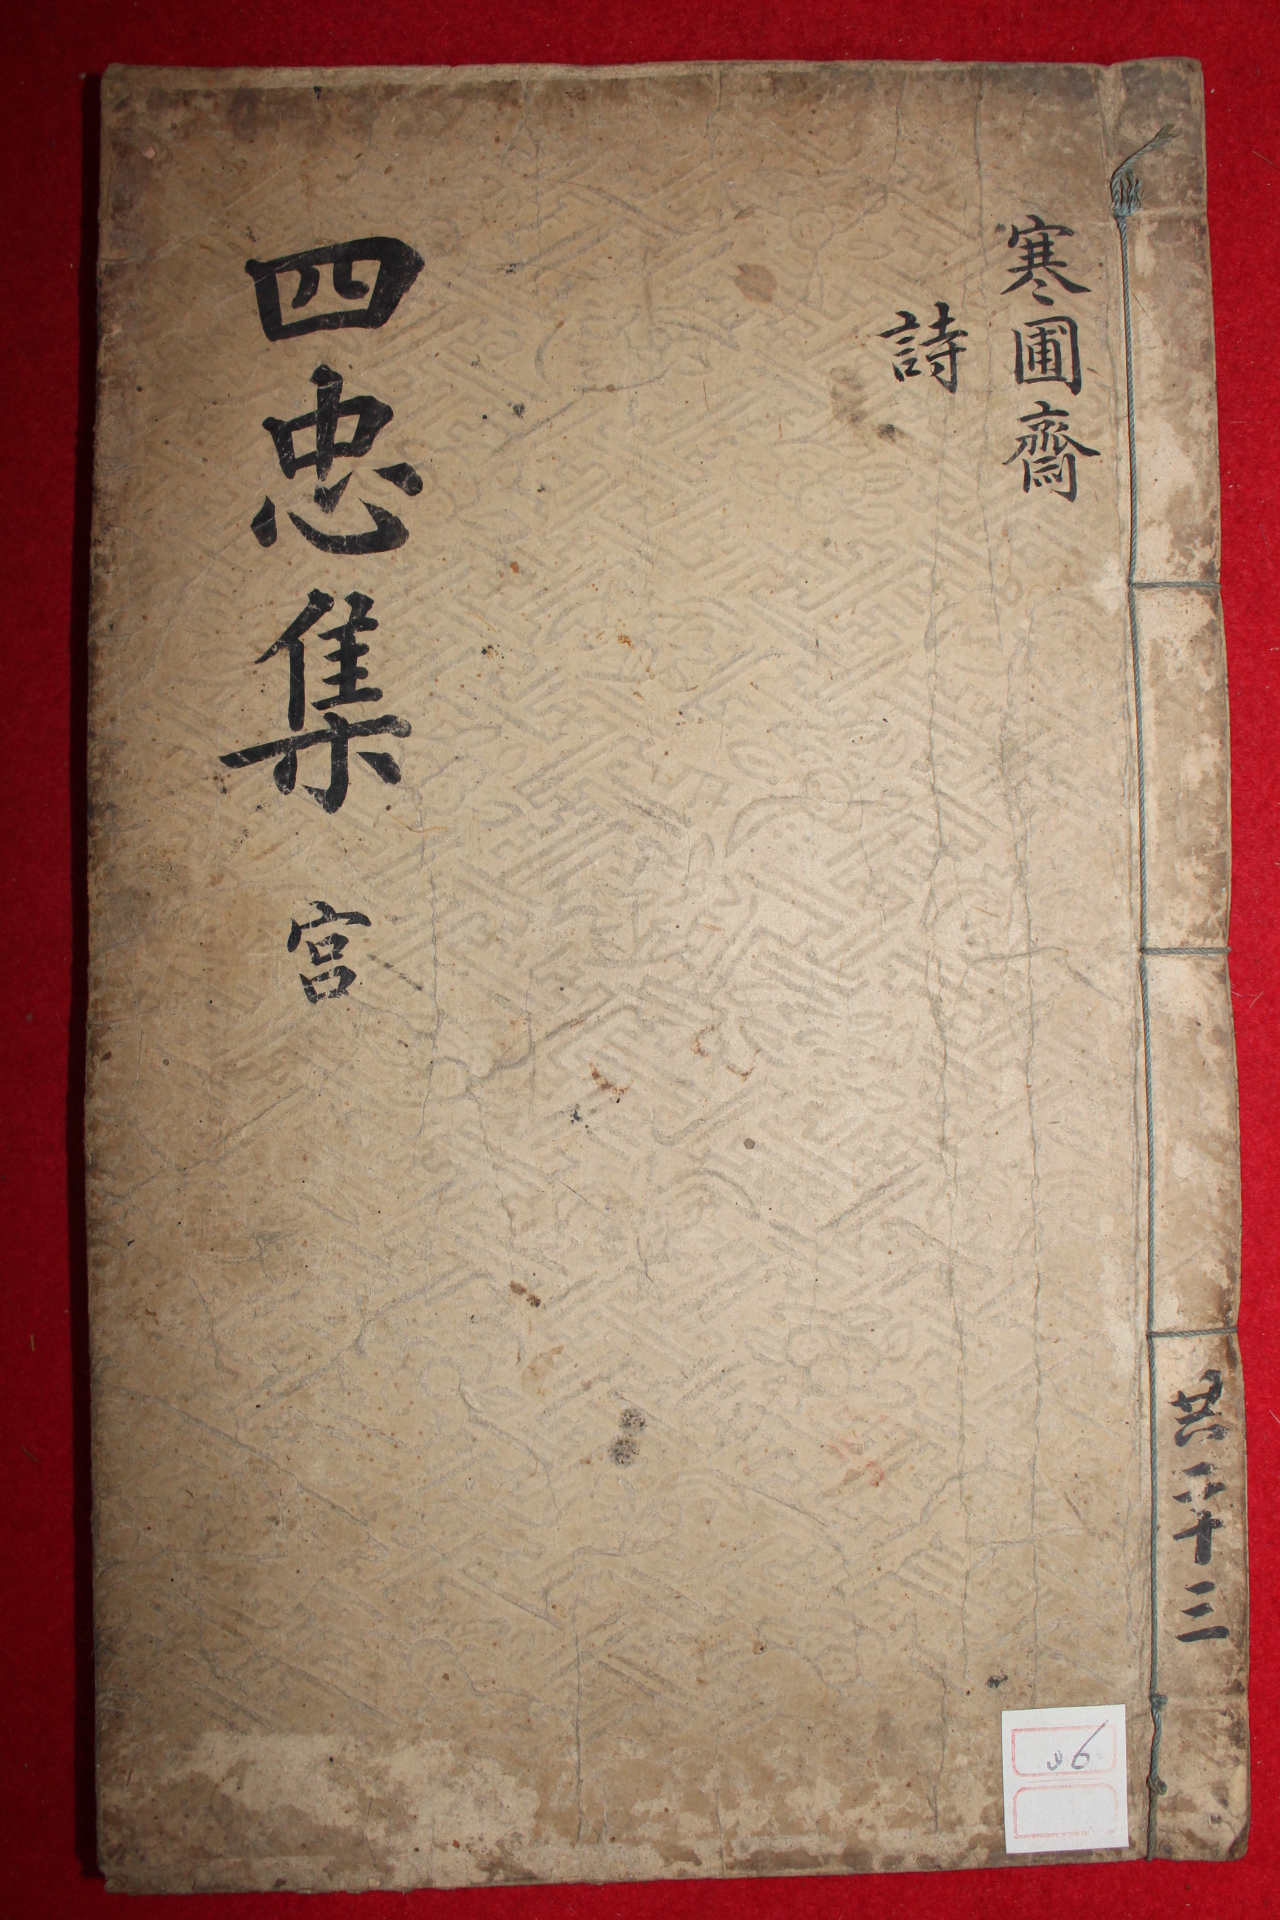 寒圃齋
詩
四忠集 宮
共二十三